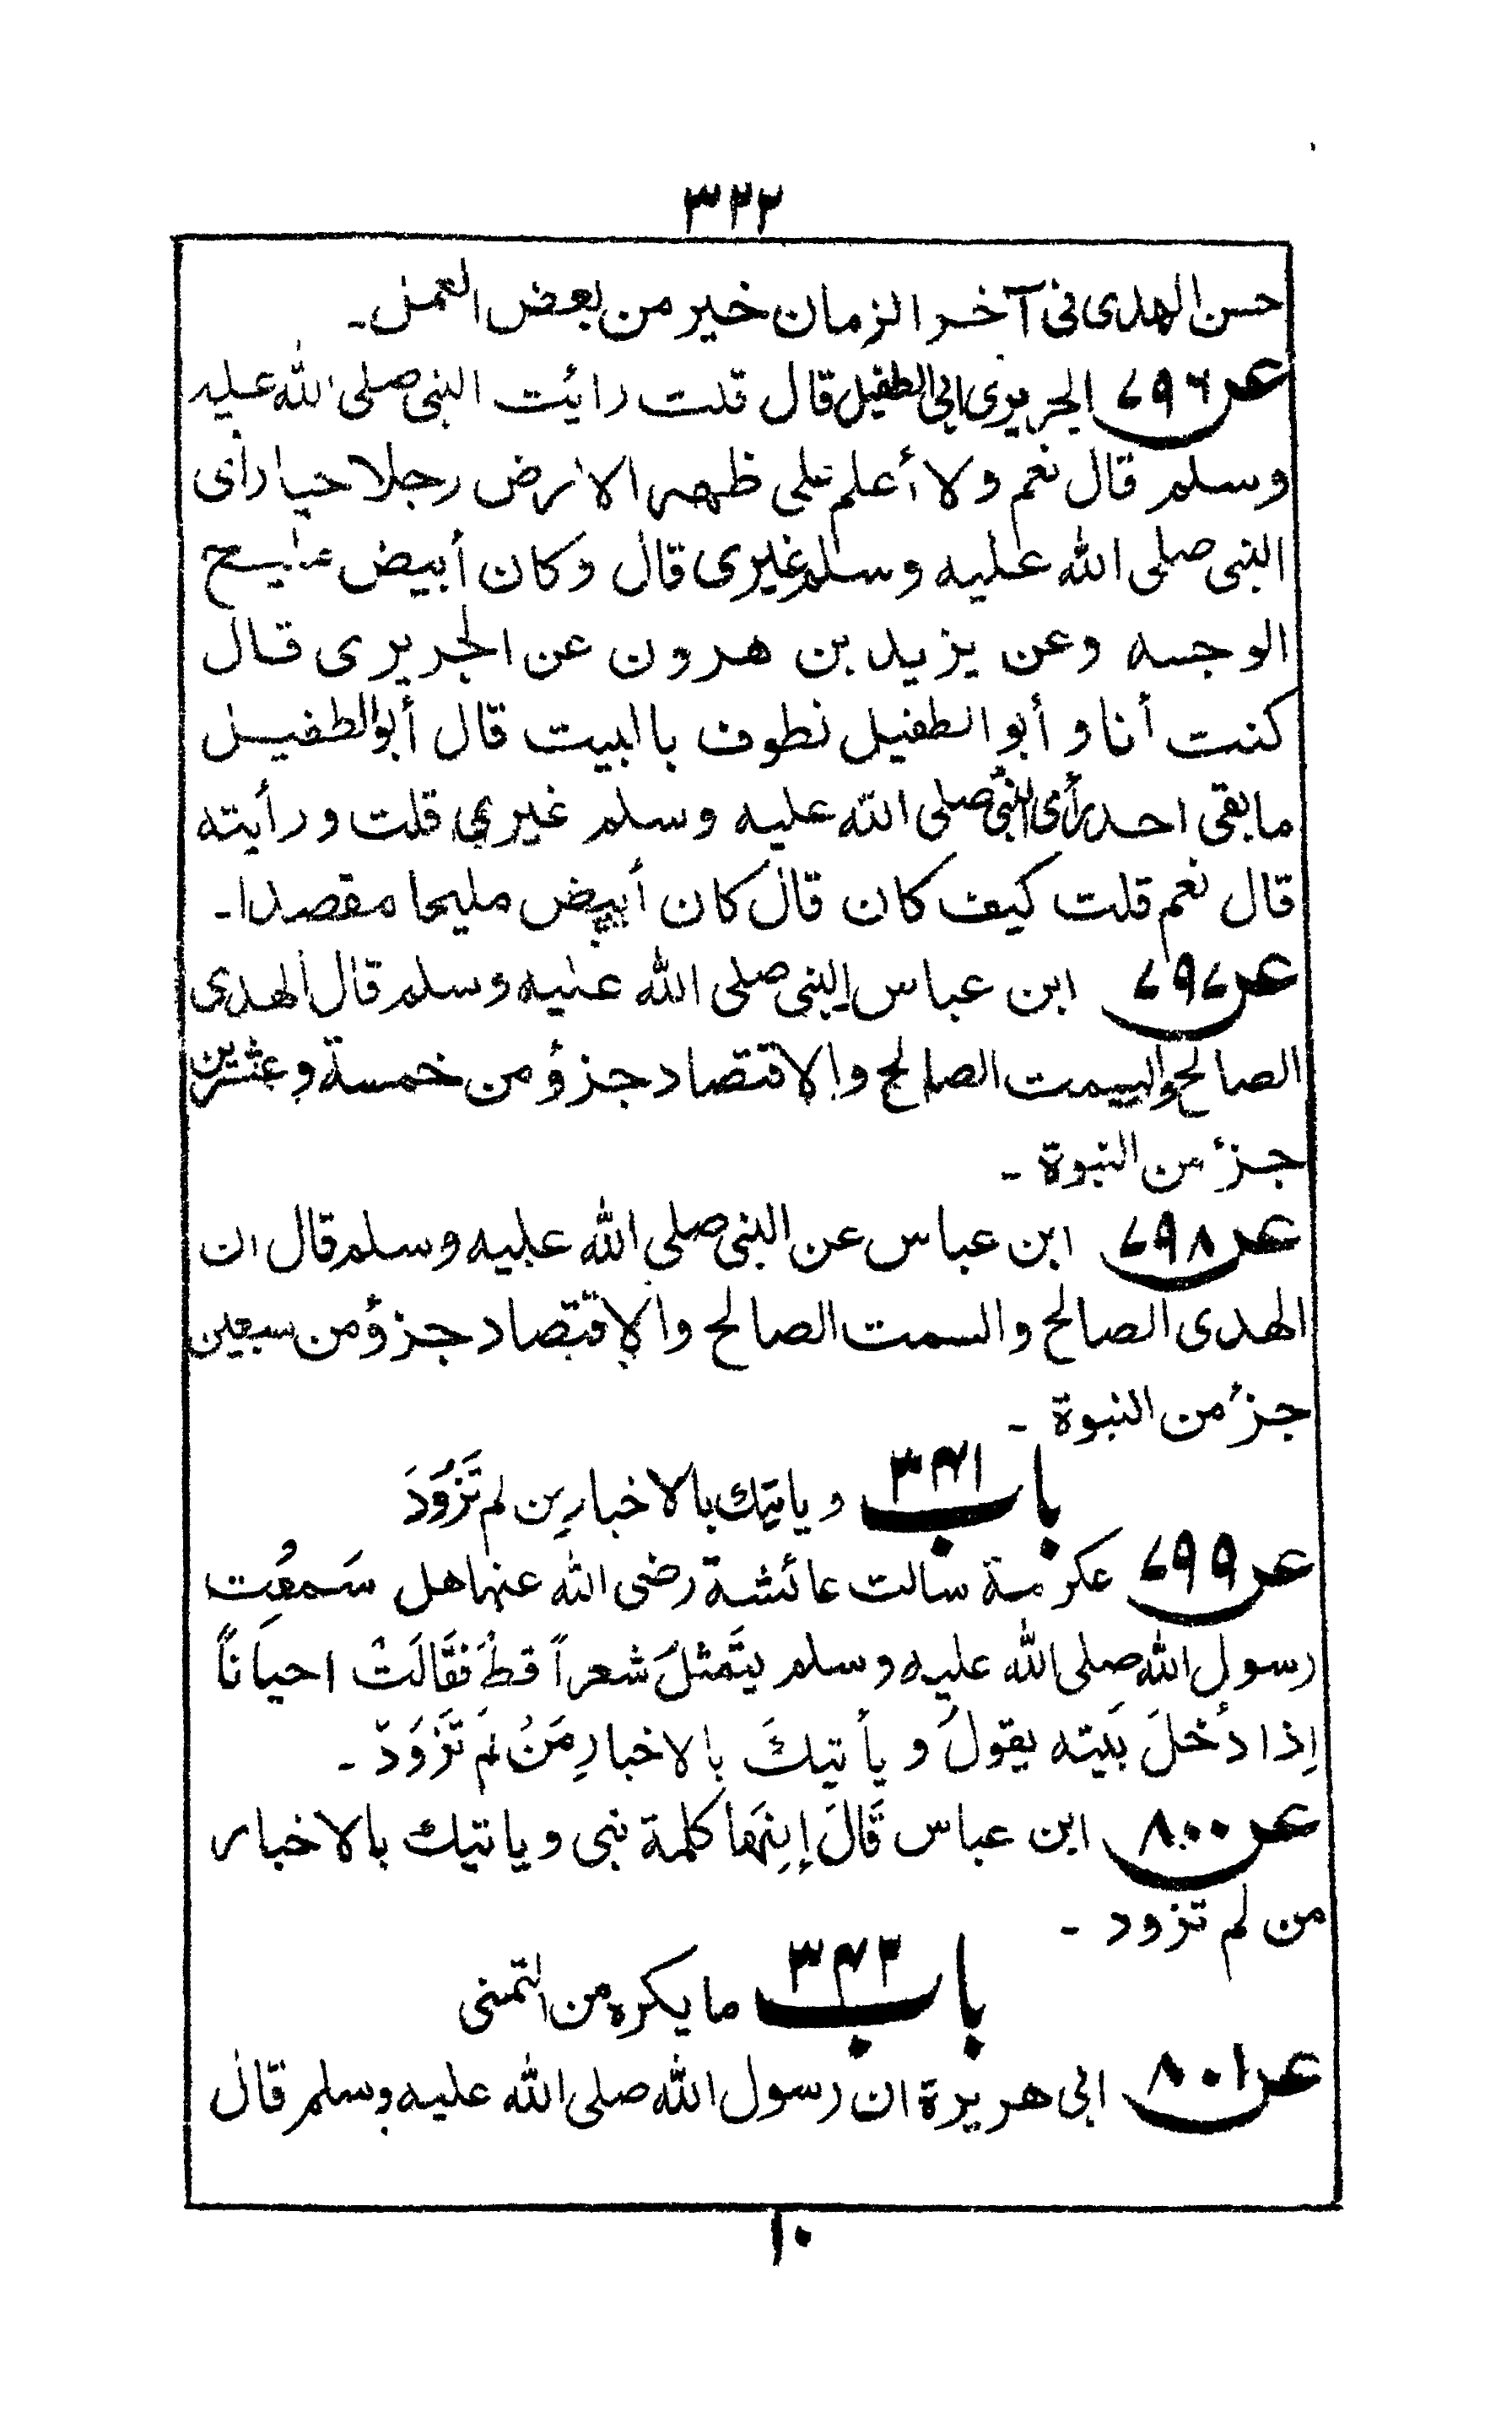 ٣٢٢
حسن الهدى فى آخر الزمان خير من بعض العمل۔
عن ٧٩٦ الجريرى ابى الطفيل قال قلت رائيت النبى صلى الله عليه
وسلم قال نعم ولا أعلم على ظهر الارض رجلا حيا رانى
النبى صلى الله عليه وسلم غيرى قال وكان أبيض مليح
الوجه وعن يزيد بن هرون عن الجريرى قال
كنت أنا و أبو الطفيل نطوف بالبيت قال أبو الطفيل
مابقى احد رأى النبى صلى الله عليه وسلم غيرى قلت ورأيته
قال نعم قلت كيف كان قال كان أبيض مليحا مقصدا۔
عن ٧٩٧ ابن عباس النبى صلى الله عليه وسلم قال الهدى
الصالح والسمت الصالح والاقتصاد جزؤ من خمسة وعشرين
جزء من النبوة ۔
عن ٧٩٨ ابن عباس عن النبى صلى الله عليه وسلم قال ان
الهدى الصالح والسمت الصالح والاقتصاد جزؤ من سبعين
جزء من النبوة ۔
باب ٣٦١ وياتيك بالاخبار من لم تَزَوَّدَ
عن ٧٩٩ عكرمة سالت عائشة رضى الله عنها هل سَمعُت
رسول الله صلى الله عليه وسلم يتَمثلُ شعراً قطُ فَقَالَتُ احيَاناً
اِذا دخلَ بَيته يقولُ و يأتيكَ بالاخبارِ مَنُ لَم تَزَوَدّ ۔
عن ٨٠٠ ابن عباس قَالَ إنِهَا كلمة نبى وياتيك بالاخبار
من لم تزود ۔
باب ٣٦٢ ما يكره من التمنى
عن ٨٠١ ابى هريرة ان رسول الله صلى الله عليه وسلم قال
١٠